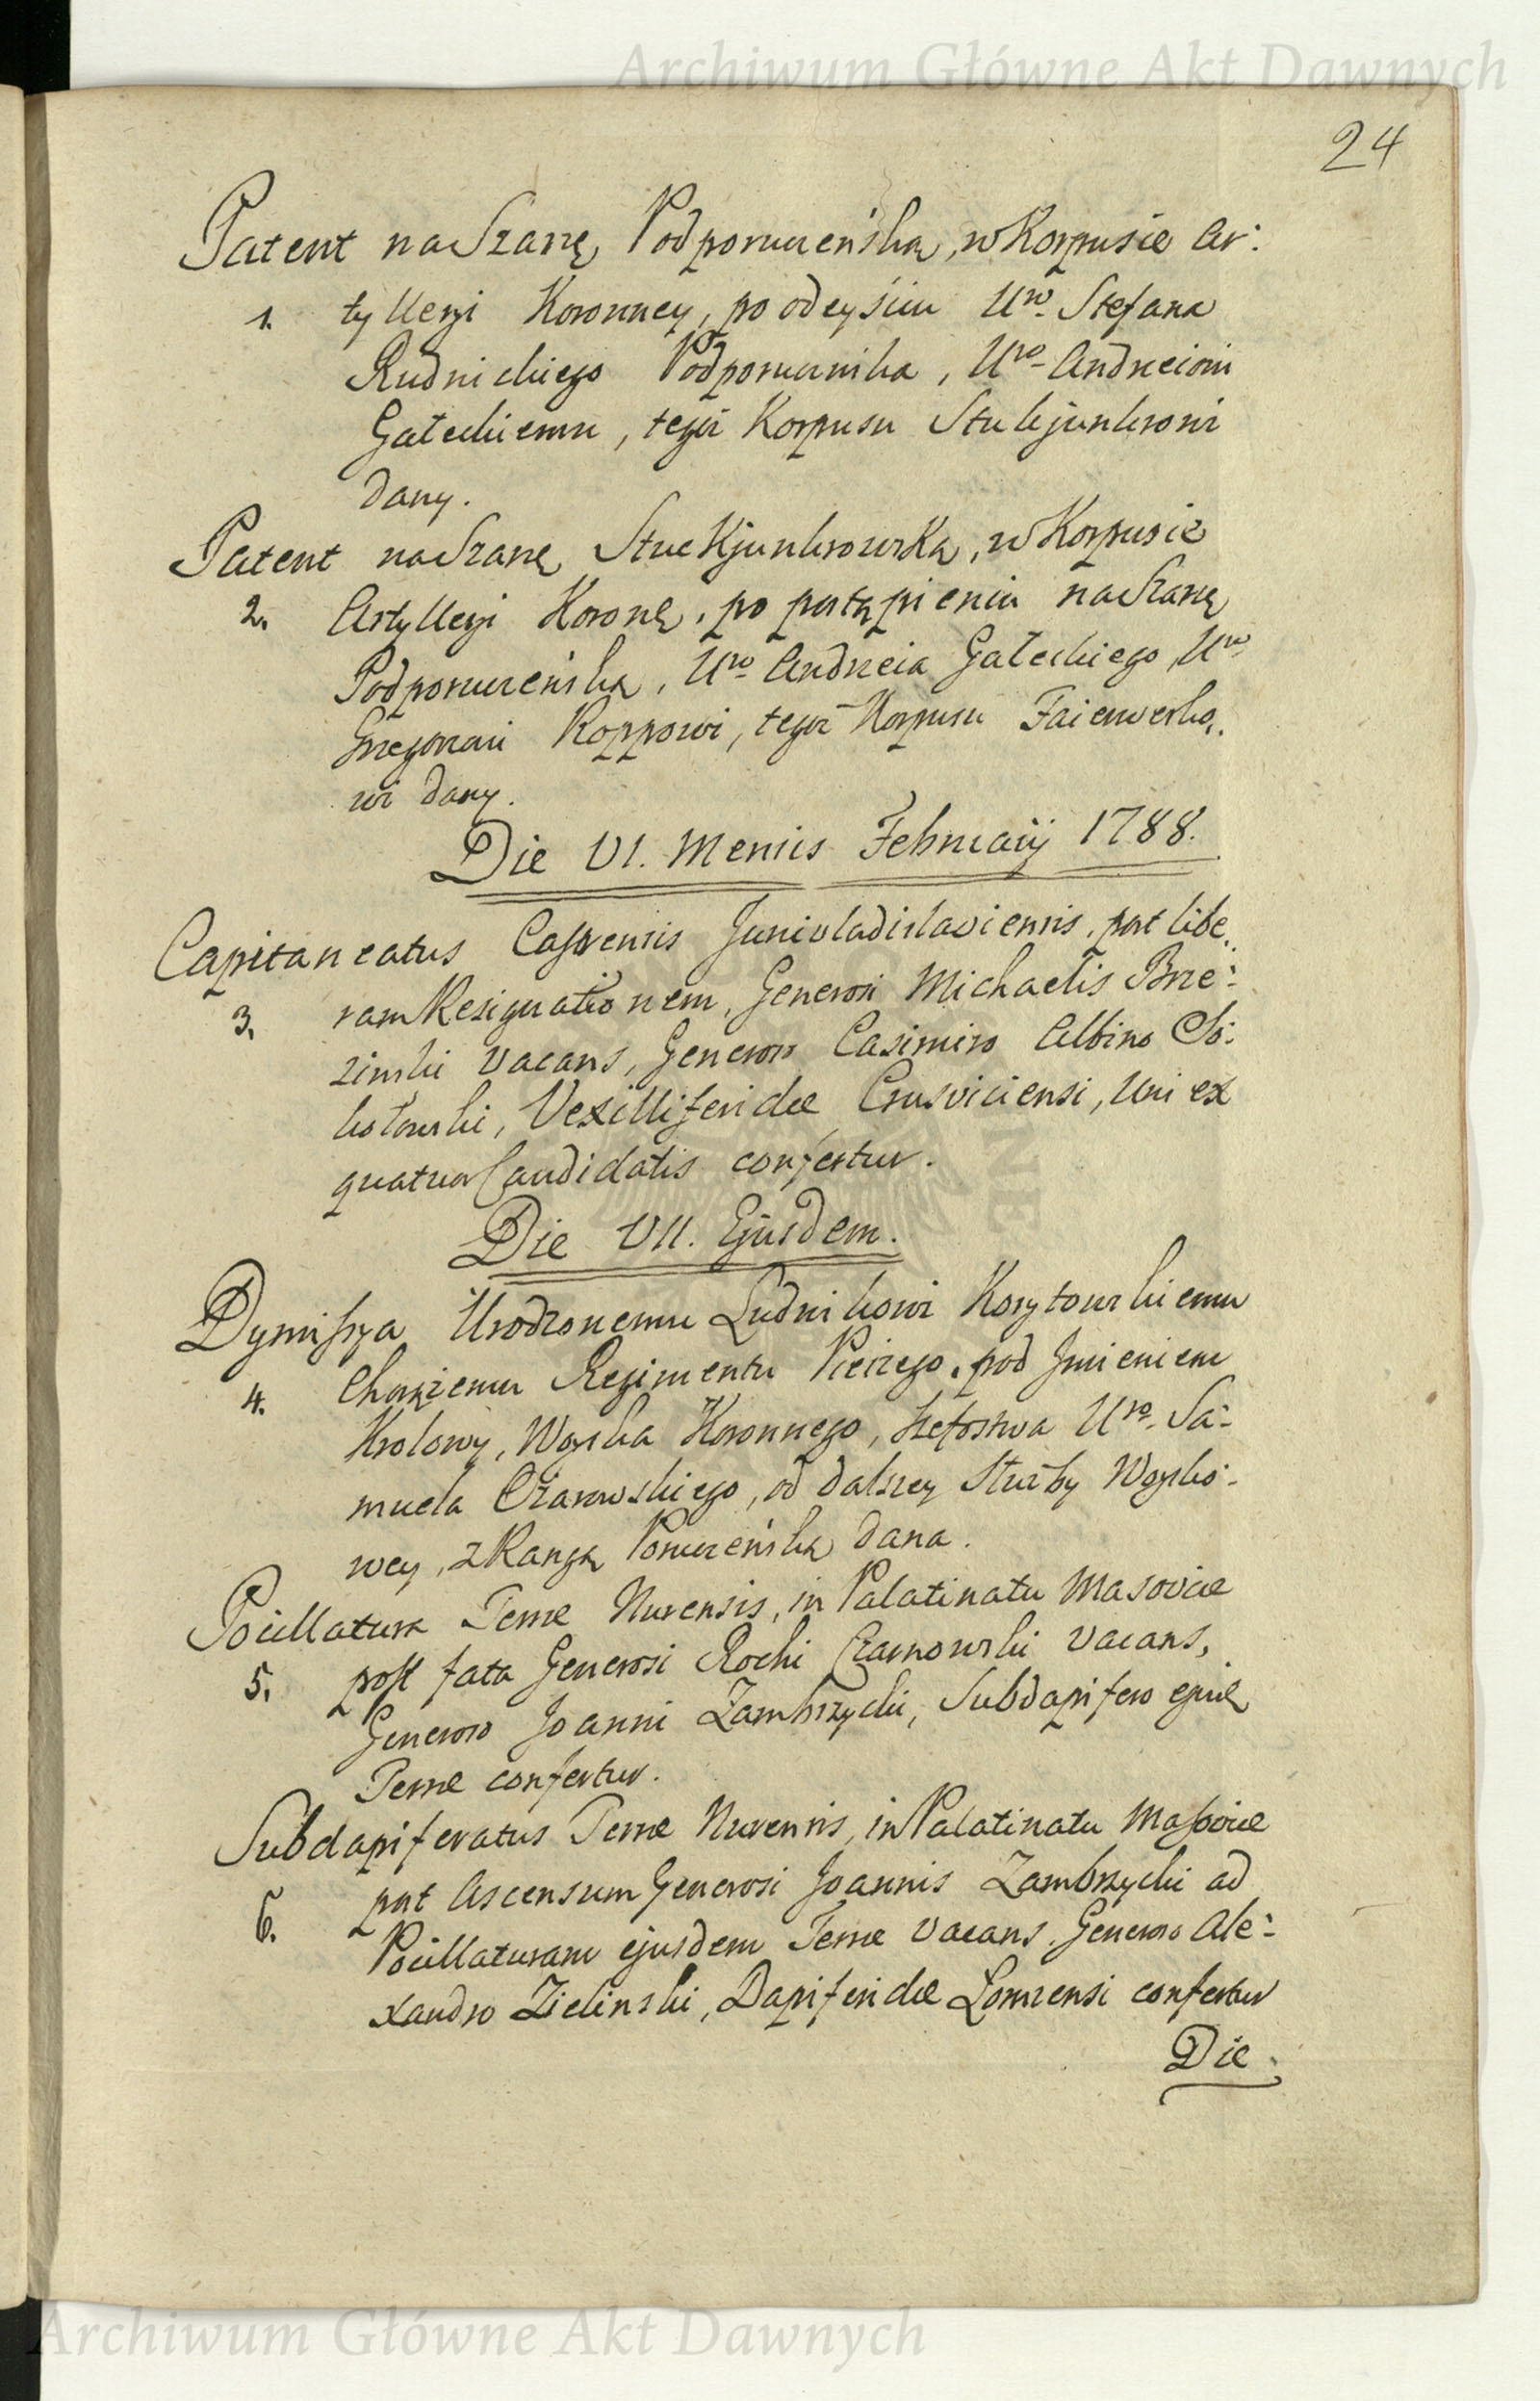 Archiwum Główne Akt Dawnych
24
Patent na Szarżę Podporuczeńską, w Korpusie Ar:
1. tylleryi Koronney, po odeyściu Uro Stefana
Rudnickiego Podporucznika, Uro Andrzeiowi
Gałeckiemu, tegoż Korpusu Stukjunkrowi
dany.
Patent na Szarżę Stuckjunkrowską, w Korpusie
2. Artylleryi Koronę, po postąpieniu na Szarżę
Podporuczeńską, Uro Andrzeia Gałeckiego, Uro
Grzegorzowi Roppowi, tegoż Korpusu Faierwerko,,
wi dany.
Die VI. Mensis Februarij 1788.
Capitaneatus Castrensis Junivladislaviensis, post libe,,
3. ram Resignationem, Generosi Michaelis Brze:
zinski vacans, Generoso Casimiro Albino So:
kołowski, Vexilliferidæ Crusviciensi, Uni ex
quatuor Candidatis confertur.
Die VII. Ejusdem.
Dymissya Urodzonemu Ludwikowi Korytowskiemu
4. Chorążemu Regimentu Pieszego, pod Jmieniem
Krolowy, Woyska Koronnego, szefostwa Uro Sa:
muela Ożarowskiego, od dalszey Służby Woysko:
wey, z Rangą Poruczeńską dana.
Pocillatura Terræ Nurensis, in Palatinatu Masoviæ
5. post fata Generosi Rochi Czarnowski vacans,
Generoso Joanni Zambrzycki, Subdapifero ejusdę
Terræ confertur.
Subdapiferatus Terræ Nurensis, in Palatinatu Massoviæ
6. post Ascensum Generosi Joannis Zambrzycki ad
Pocillaturam ejusdem Terræ vacans, Generoso Ale:
xandro Zielinski, Dapiferidæ Lomzensi confertur
Die
Archiwum Główne Akt Dawnych